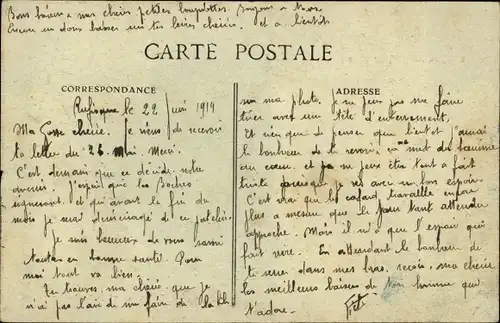 Bons baisers a mes chers petites
Encore un doux baiser sur tes lèvres chéries. et a bientôt
CARTE POSTALE
CORRESPONDANCE
ADRESSE
Rufisque le 22 juin 1919
Ma Gosse chérie. Je viens de recevoir
ta lettre du 26 Mai Merci.
C'est demain que ce décide notre
avenir. J'espère que les Boches
signeront. et qui avant la fin du
mois je serai débarrassé de ce
Je suis heureux de vous savoir
toutes en bonne santé. Pour
moi tout va bien.
Tu trouves, ma chérie, que je
n'ai pas l'air de m'en faire de la bile
sur ma photo. Je ne peux pas me faire
tirer avec une tête d'enterrement,
Et rien que de penser que bientôt j'aurai
le bonheur de te revoir, ca met du baume
au cœur. et ca ne peux être tout a fait
triste je vis avec un bon espoir.
C'est vrai que le cafard travaille encore
plus a mesure que le jour tant attendu
approche. Mais il n'y a que l'espoir qui
fait vivre. En attendant le bonheur de
te serrer dans mes bras, reçois, ma chérie
les meilleurs baisers de ton homme qui
t'adore.